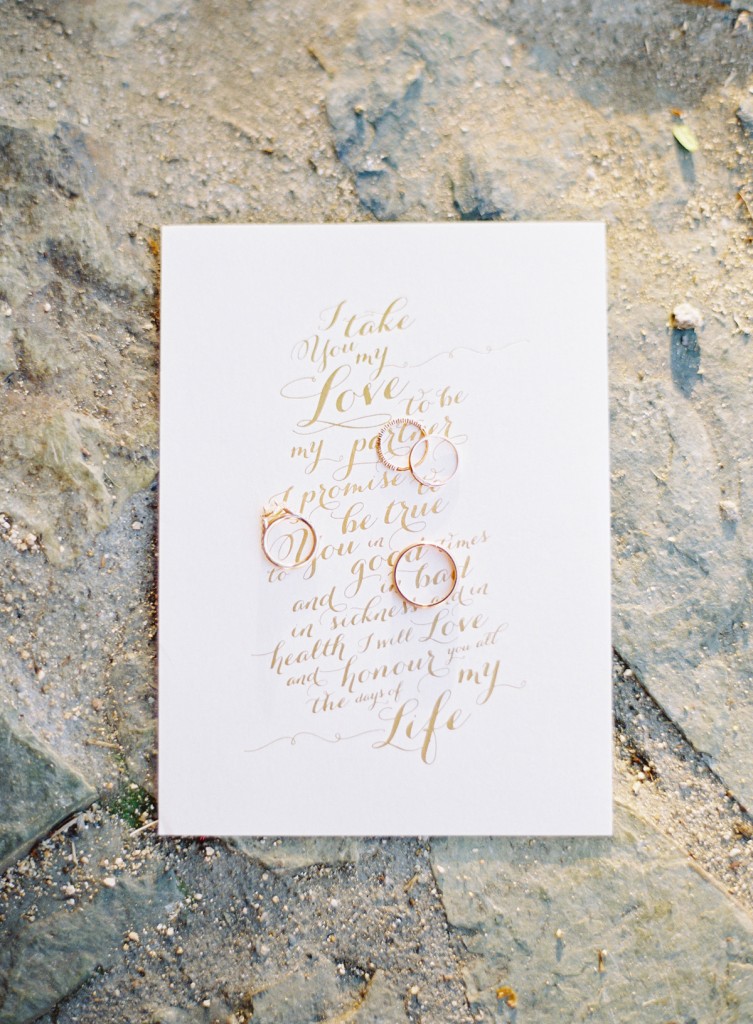 I take
You my
Love to be
my partner
I promise to
be true
to You in good times
and in bad
in sickness and in
health I will Love
and honour you all
the days of my
Life